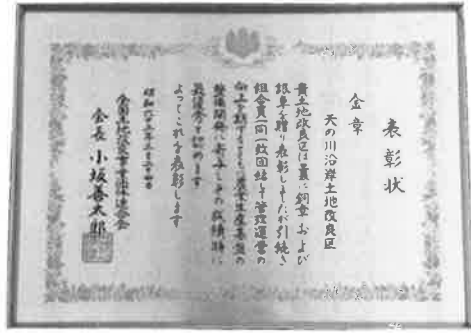 表彰状
金章
天の川沿岸土地改良区
貴土地改良区は曩に銅章および
銀章を贈り表彰しましたが引続き
組合員一同一致団結し管理運営の
向上を期するとともに農業生産基盤の
整備開発に寄与しその成績特に
最優秀と認めます
よってこれを表彰します
昭和六十三年三月二十四日
全国土地改良事業団体連合会
会長 小坂善太郎